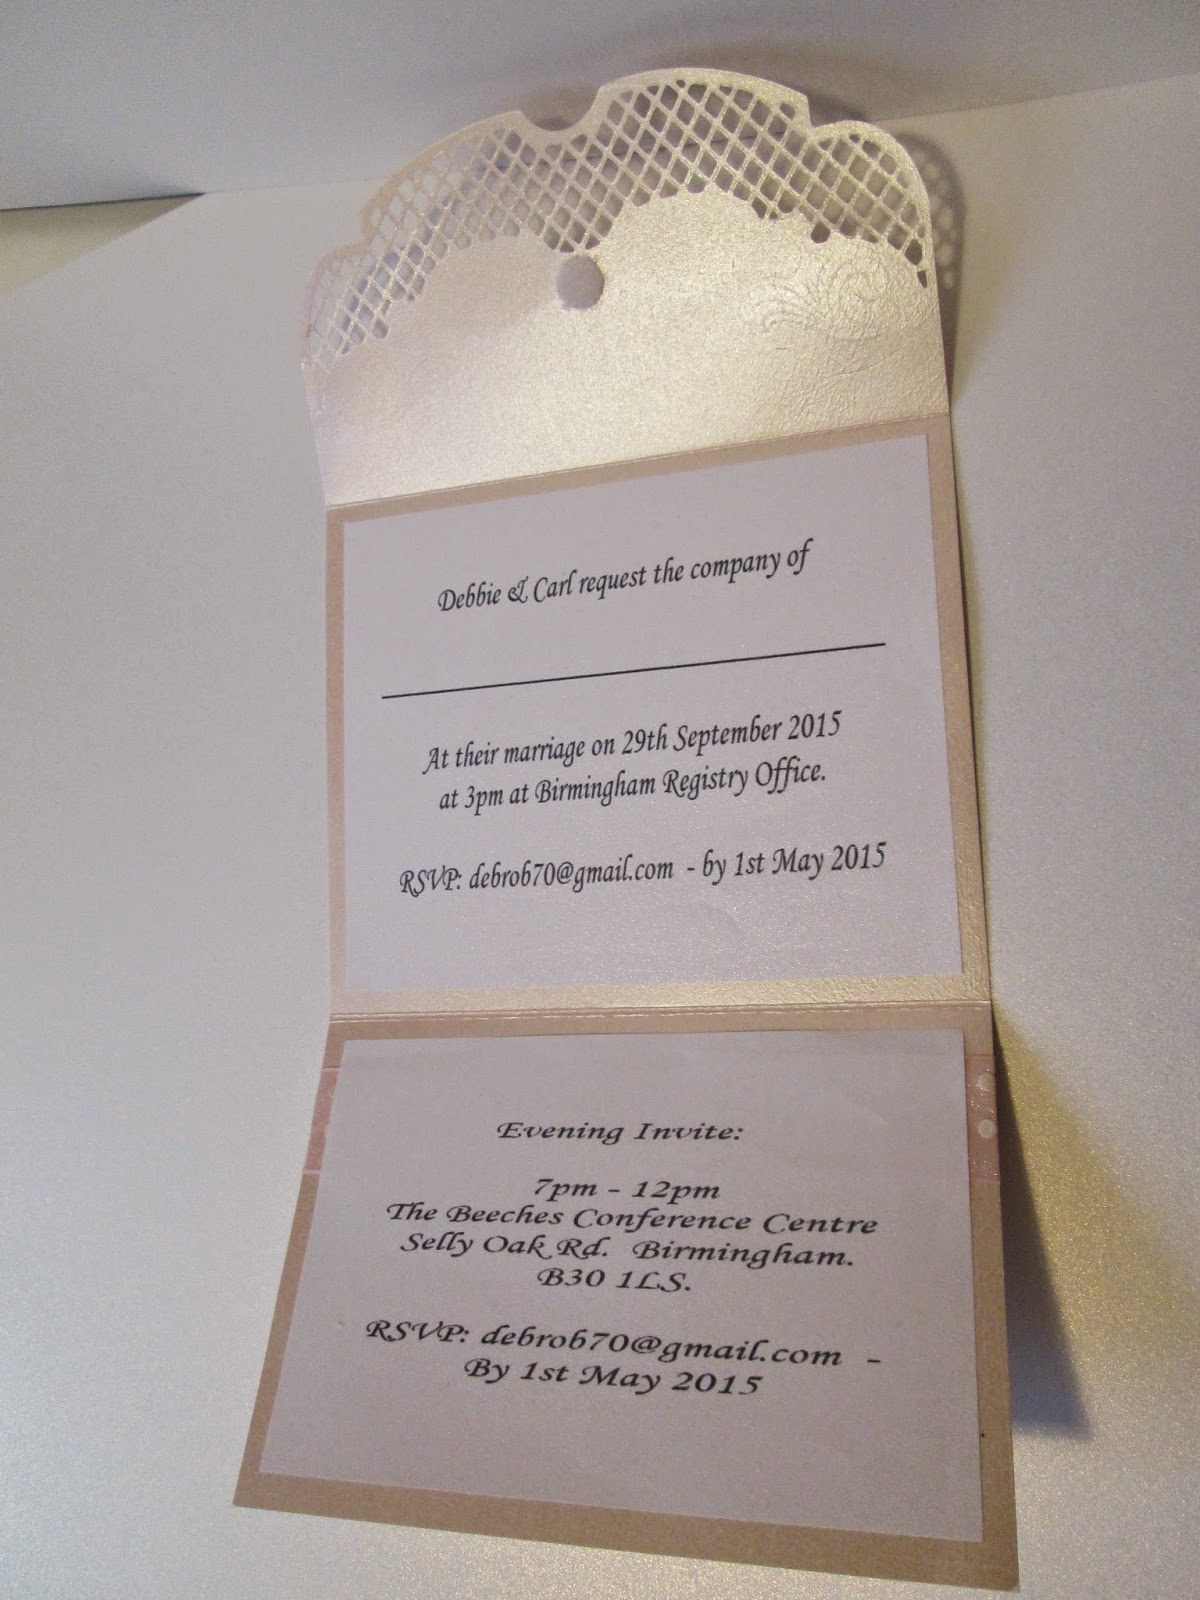 Debbie & Carl request the company of
At their marriage on 29th September 2015
at 3pm at Birmingham Registry Office.
RSVP: debrob70@gmail.com - by 1st May 2015
Evening Invite:
7pm - 12pm
The Beeches Conference Centre
Selly Oak Rd. Birmingham.
B30 1LS.
RSVP: debrob70@gmail.com -
By 1st May 2015